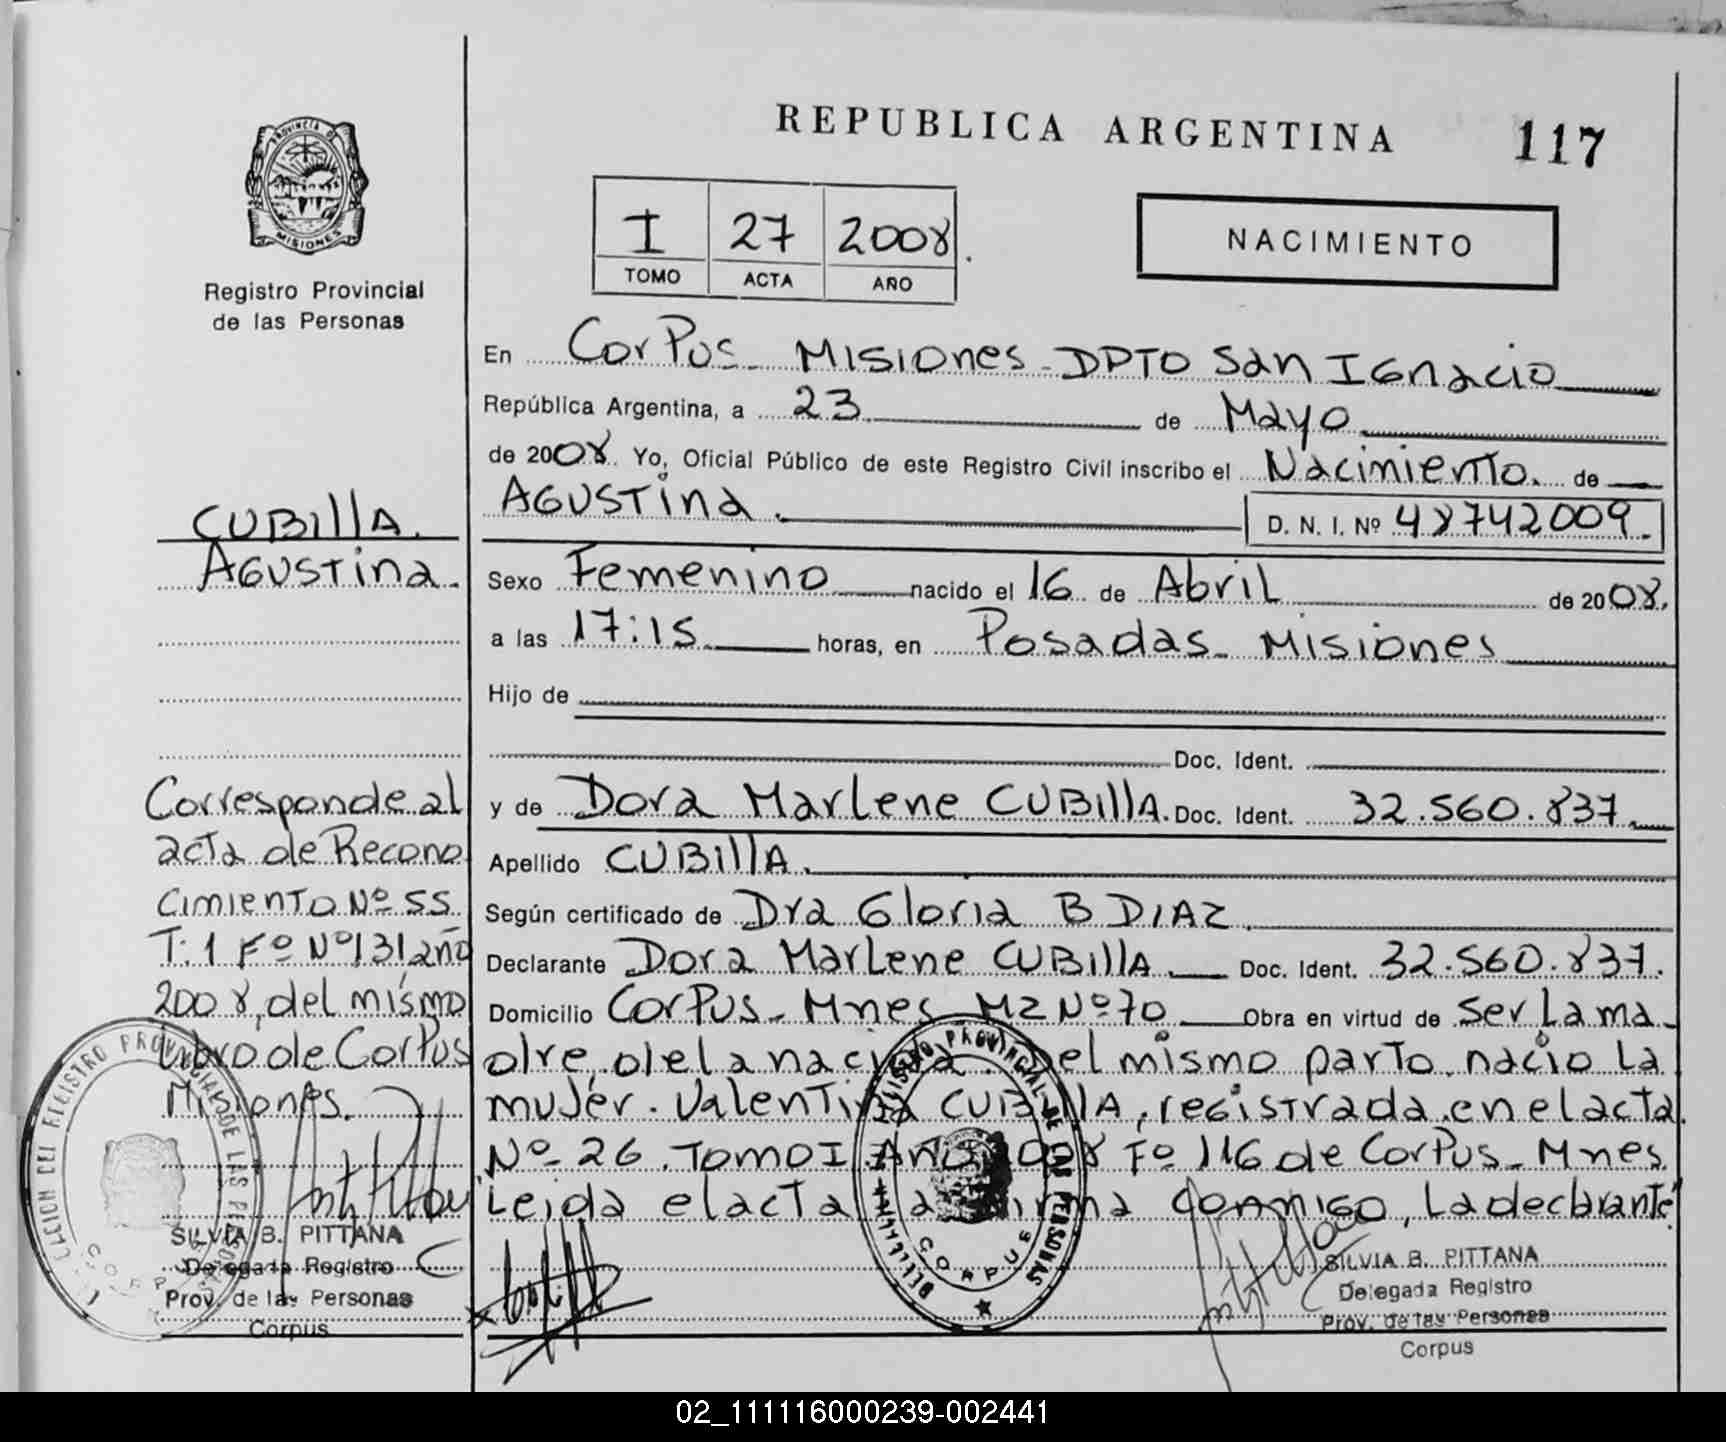 REPUBLICA ARGENTINA 117
PROVINCIA DE
MISIONES
Registro Provincial
de las Personas
I 27 2008.
TOMO ACTA AÑO
NACIMIENTO
En Corpus - Misiones - DPTO San Ignacio
República Argentina, a 23 de Mayo
de 2008. Yo, Oficial Público de este Registro Civil inscribo el Nacimiento. de
AGUSTina.
D. N. I. Nº 48742009.
Sexo Femenino nacido el 16 de Abril de 2008.
a las 17:15 horas, en Posadas - Misiones
Hijo de
Doc. Ident.
y de Dora Marlene CUBillA. Doc. Ident. 32.560.837.
Apellido CUBillA.
Según certificado de Dra Gloria B DIAZ.
Declarante Dora Marlene CUBillA Doc. Ident. 32.560.837.
Domicilio Corpus - Mnes MZ Nº 70 Obra en virtud de ser La ma-
dre, de la nacida. Del mismo parto nacio La
mujer. Valentina CUBillA, registrada en el acta
Nº 26. Tomo I Año 2008 Fº 116 de Corpus - Mnes.
Leida el acta la firma conmigo, La declarante
CUBillA.
AGUSTina.
Corresponde al
acta de Recono
cimiento Nº 55
T: 1 Fº Nº 131 año
2008, del mismo
Libro de Corpus
Misiones.
SILVIA B. PITTANA
Delegada Registro
Prov. de las Personas
Corpus
SILVIA B. PITTANA
Delegada Registro
Prov. de las Personas
Corpus
REGISTRO PROVINCIAL DE LAS PERSONAS
CORPUS
REGISTRO PROVINCIAL DE LAS PERSONAS
CORPUS
02_111116000239-002441